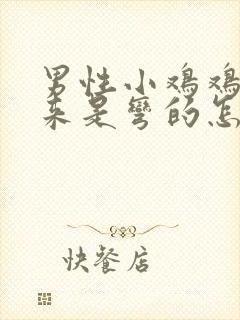 男性小鸡鸡
来是弯的怎
快餐店